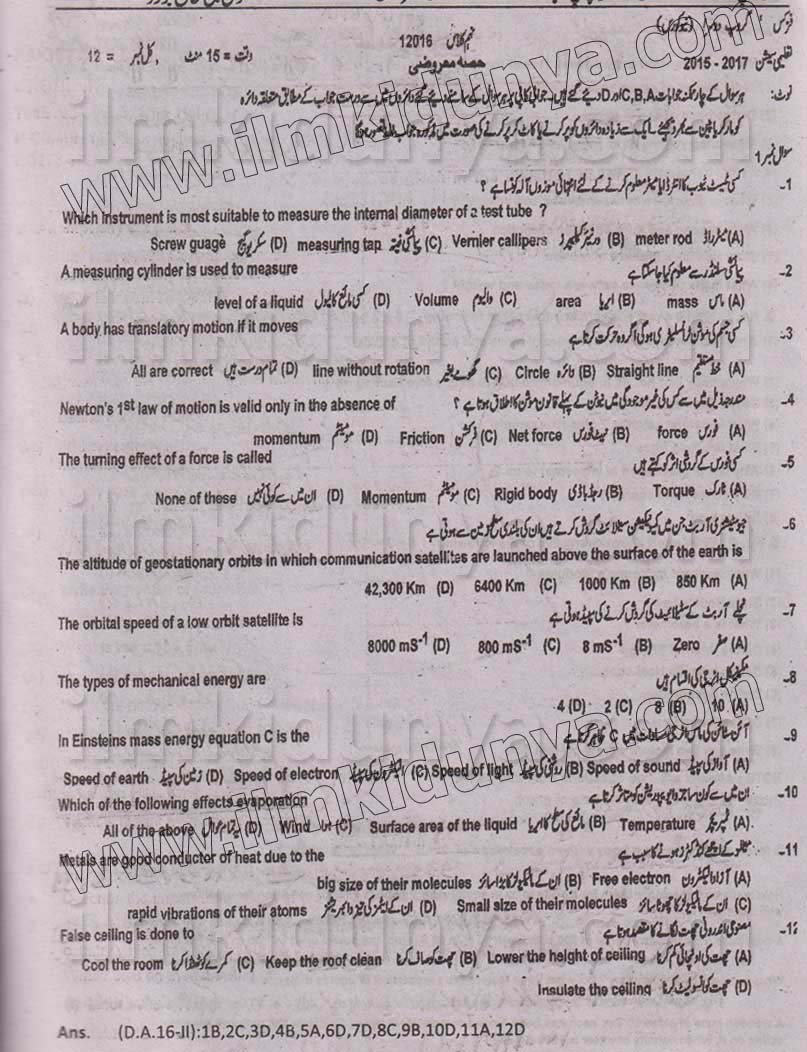 12016
وقت = 15 منٹ ، کل نمبر = 12
حصہ معروضی
تعلیمی سیشن 2015 - 2017
نوٹ: ہر سوال کے چار ممکنہ جوابات C,B,A اور D دیئے گئے ہیں۔
سوال نمبر 1
1-
Which instrument is most suitable to measure the internal diameter of a test tube ?
(A) میٹر راڈ meter rod (B) ورنیئر کیلیپرز Vernier callipers (C) پیمائشی فیتہ measuring tap (D) سکریو گیج Screw guage
2- پیمائشی سلنڈر سے معلوم کیا جا سکتا ہے
A measuring cylinder is used to measure
(A) ماس mass (B) ایریا area (C) والیوم Volume (D) کسی مائع کا لیول level of a liquid
3- کسی جسم کی موشن ٹرانسلیٹری ہوگی اگر وہ حرکت کرتا ہے
A body has translatory motion if it moves
(A) خط مستقیم Straight line (B) دائرہ Circle (C) گھومے بغیر line without rotation (D) تمام درست ہیں All are correct
4- مندرجہ ذیل میں سے کس کی غیر موجودگی میں نیوٹن کے پہلے قانون موشن کا اطلاق ہوتا ہے ؟
Newton's 1st law of motion is valid only in the absence of
(A) فورس force (B) نیٹ فورس Net force (C) فرکشن Friction (D) مومینٹم momentum
5- کسی فورس کے گردشی اثر کو کہتے ہیں
The turning effect of a force is called
(A) ٹارک Torque (B) رجڈ باڈی Rigid body (C) مومینٹم Momentum (D) ان میں سے کوئی نہیں None of these
6- جیوسٹیشنری آربٹ جن میں کمیونیکیشن سیٹلائٹ گردش کرتے ہیں ان کی بلندی سطح زمین سے ہوتی ہے
The altitude of geostationary orbits in which communication satellites are launched above the surface of the earth is
(A) 850 Km (B) 1000 Km (C) 6400 Km (D) 42,300 Km
7- نچلے آربٹ کے سیٹلائیٹ کی گردش کرنے کی سپیڈ ہوتی ہے
The orbital speed of a low orbit satellite is
(A) صفر Zero (B) 8 mS-1 (C) 800 mS-1 (D) 8000 mS-1
8- مکینیکل انرجی کی اقسام ہیں
The types of mechanical energy are
(A) 10 (B) 8 (C) 2 (D) 4
9-
In Einsteins mass energy equation C is the
(A) آواز کی سپیڈ Speed of sound (B) روشنی کی سپیڈ Speed of light (C) الیکٹرون کی سپیڈ Speed of electron (D) زمین کی سپیڈ Speed of earth
10- ان میں سے کون سا
Which of the following effects evaporation
(A) ٹمپریچر Temperature (B) مائع کی سطح کا ایریا Surface area of the liquid (C) ہوا Wind (D) All of the above
11-
Metals are good conductor of heat due to the
(A) آزاد الیکٹرون Free electron (B) ان کے مالیکیولز کا بڑا سائز big size of their molecules
(C) ان کے مالیکیولز کا چھوٹا سائز Small size of their molecules (D) rapid vibrations of their atoms
12- مصنوعی اندرونی چھت لگانے کا مقصد ہوتا ہے
False ceiling is done to
(A) چھت کی اونچائی کم کرنا Lower the height of ceiling (B) چھت کو صاف کرنا Keep the roof clean (C) کمرے کو ٹھنڈا کرنا Cool the room
(D) چھت کو انسولیٹ کرنا Insulate the ceiling
Ans. (D.A.16-II):1B,2C,3D,4B,5A,6D,7D,8C,9B,10D,11A,12D
www.ilmkidunya.com
www.ilmkidunya.com
ilmkidunya.com
ilmkidunya.com
ilmkidunya.com
ilmkidunya.com